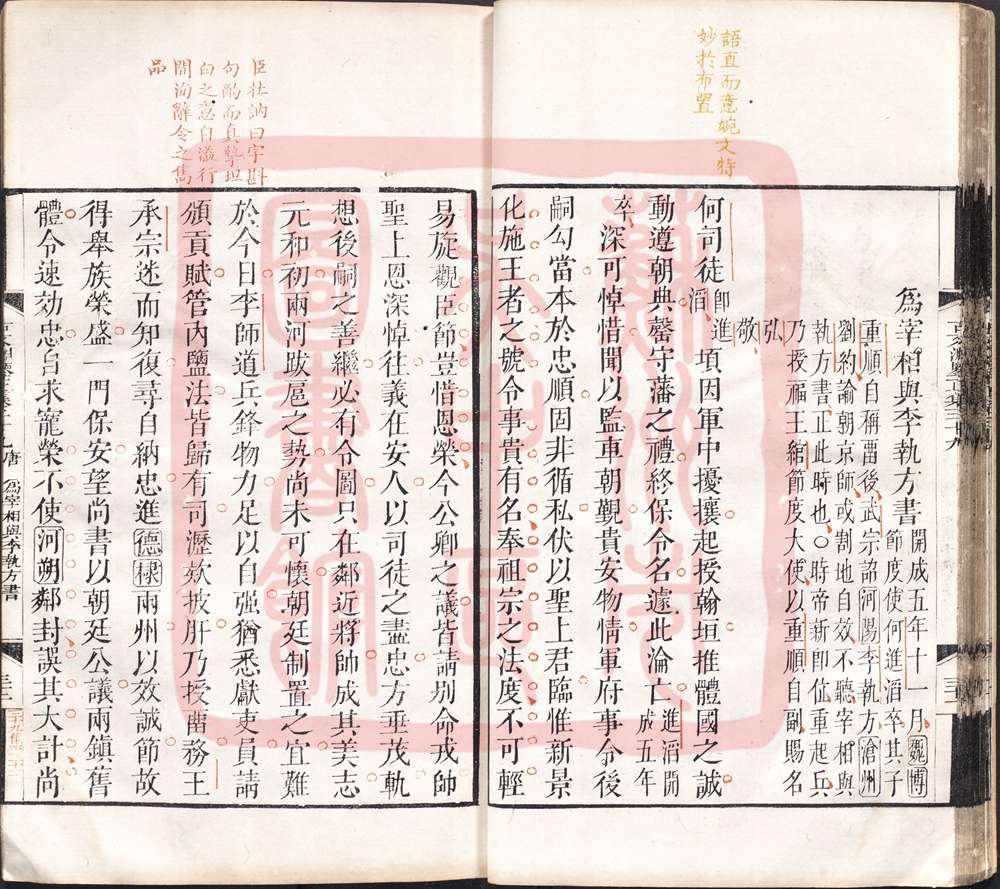 語直而意婉文特
妙於布置
為宰相與李執方書
開成五年十一月魏博
節度使何進滔卒其子
重順自稱畱後武宗詔河陽李執方滄州
劉約諭朝京師或割地自效不聽宰相與
執方書正此時也○時帝新卽位重起兵
乃授福王綰節度大使以重順自副賜名
弘敬
何司徒卽進滔頃因軍中擾攘起授翰垣推體國之誠
動遵朝典罄守藩之禮終保令名遽此淪亡進滔開成五年
卒深可悼惜聞以監車朝覲貴安物情軍府事令後
嗣勾當本於忠順固非循私伏以聖上君臨惟新景
化施王者之號令事貴有名奉祖宗之法度不可輕
臣杜訥曰字斟
句酌而真摯坦
白之意自溢行
間洵辭令之雋
品
易旋觀臣節豈惜恩榮今公卿之議皆請別命戎帥
聖上恩深悼往義在安人以司徒之盡忠方垂茂軌
想後嗣之善繼必有令圖只在鄰近將帥成其美志
元和初兩河跋扈之勢尚未可懷朝廷制置之宜難
於今日李師道兵鋒物力足以自强猶悉獻吏員請
頒貢賦管內鹽法皆歸有司瀝欵披肝乃授畱務王
承宗迷而知復尋自納忠進德棣兩州以效誠節故
得舉族榮盛一門保安望尚書以朝廷公議兩鎮舊
體令速効忠自求寵榮不使河朔鄰封誤其大計尚
唐
為宰相與李執方書